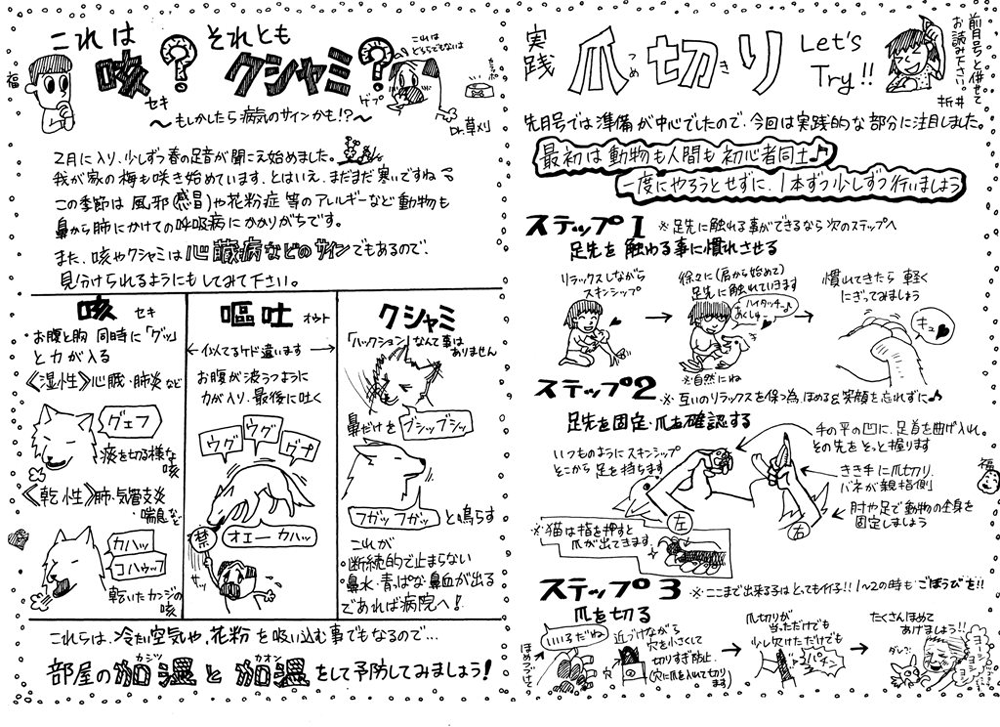 これは
咳？
セキ
それとも
クシャミ？
これは
どちらでもないは
ゲプ
福
Dr.草刈
～もしかしたら病気のサインかも!?～
2月に入り、少しずつ春の足音が聞こえ始めました。
我が家の梅も咲き始めています。とはいえ、まだまだ寒いですね
この季節は風邪(感冒)や花粉症等のアレルギーなど動物も
鼻から肺にかけての呼吸病にかかりがちです。
また、咳やクシャミは心臓病などのサインでもあるので、
見分けられるようにもしてみて下さい。
咳 セキ
お腹と胸 同時に「グッ」
と力が入る
《湿性》心臓・肺炎など
グェフ
痰を切る様な
咳
《乾性》肺・気管支炎
・喘息など
カハッ
コハゥッフ
乾いたカンジの
咳
嘔吐 オウト
←似てるケド違います→
お腹が波うつように
力が入り、最後に吐く
ウグ
ウグ
ヴプ
禁
オエー カハッ
サッ
クシャミ
「ハックション」なんて事は
ありません
鼻だけを ブシッブシッ
フガッ フガッ と鳴らす
これが
・断続的で止まらない
・鼻水・青ぱな・鼻血が出る
であれば病院へ!
これらは、冷たい空気や、花粉を吸い込む事でもなるので…
部屋の加湿と加温をして予防してみましょう!
カシツ
カオン
実践 爪切り Let's
つめ
き
Try!!
前月号と併せて
お読み下さい。
折井
先月号では準備が中心でしたので、今回は実践的な部分に注目しました。
最初は動物も人間も初心者同士♪
一度にやろうとせずに、1本ずつ少しずつ行いましょう
ステップ1 ※足先に触れる事ができるなら次のステップへ
足先を触わる事に慣れさせる
リラックスしながら
スキンシップ
徐々に(肩から始めて)
足先に触れていきます
ハイタッチ♪
あくしゅ～
※自然にね
慣れてきたら軽く
にぎってみましょう
キュ♥
ステップ2 ※互いのリラックスを保つ為、ほめる&笑顔を忘れずに♪
足先を固定・爪を確認する
いつものようにスキンシップ
とこから足を持ちます
手の平の凹に、足首を曲げ入れ。
その先をそっと握ります
きき手に爪切り、
バネが親指側
肘や足で動物の全身を
固定しましょう
福
左
右
※猫は指を押すと
爪が出てきます。
ステップ3 ※ここまで出来る子はとってもイイ子!! 1~2の時もごほうびを!!
爪を切る
いいろだね
ほめつづけて
近づけながら
穴を小さくして
切りすぎ防止
(穴に爪を入れて切り
ます)
穴
爪切りが
当っただけでも
少し欠けただけでも
パチン
たくさんほめて
あげましょう!!
ダレ?
ヨーシ
ヨシヨシ